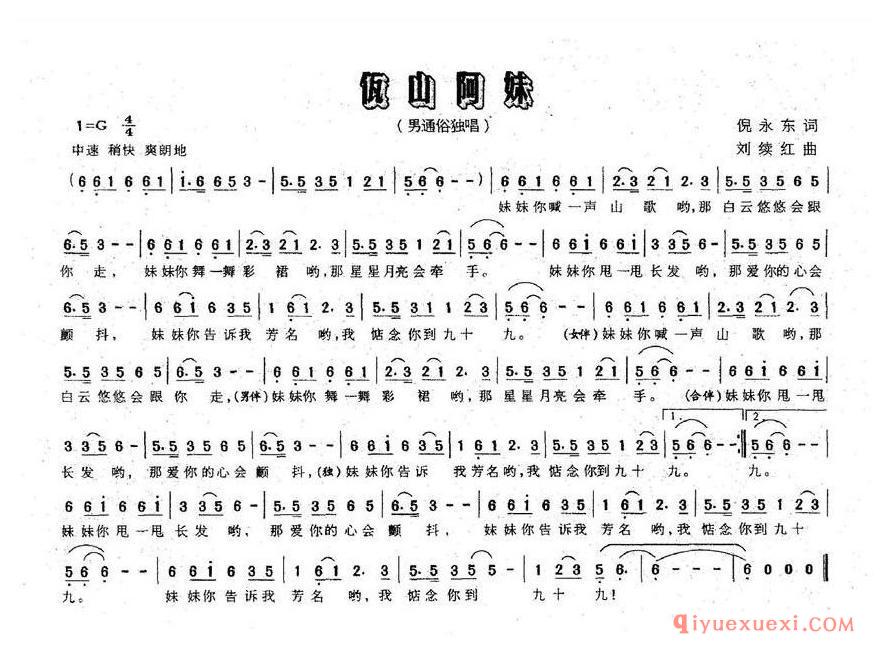 佤山阿妹
(男通俗独唱)
1=G 4/4
中速 稍快 爽朗地
倪永东词
刘续红曲
(661 661 | i.6 653- | 5.535 121 | 656--) | 661 661 | 2.321 2.3 | 5.535 565 |
妹妹你喊一声山歌哟,那白云悠悠会跟
6.53-- | 661 661 | 2.321 2.3 | 5.535 121 | 566-- | 66i 66i | 3356- | 5.535 565 |
你走,妹妹你舞一舞彩裙哟,那星星月亮会牵手。妹妹你甩一甩长发哟,那爱你的心会
6.53-- | 66i 635 | 1 61 2.3 | 5.535 123 | 566-- | 661 661 | 2.321 2.3 |
颤抖,妹妹你告诉我芳名哟,我惦念你到九十九。(女伴)妹妹你喊一声山歌哟,那
5.535 565 | 6.53-- | 661 661 | 2.321 2.3 | 5.535 121 | 566-- | 66i 66i |
白云悠悠会跟你走,(男伴)妹妹你舞一舞彩裙哟,那星星月亮会牵手。(合伴)妹妹你甩一甩
1. 2.
3356- | 5.535 565 | 6.53-- | 66i 635 | 1 61 2.3 | 5.535 123 | 566-- :‖ 566-- |
长发哟,那爱你的心会颤抖,(独)妹妹你告诉我芳名哟,我惦念你到九十九。九。
66i 66i | 3356- | 5.535 565 | 6.53-- | 66i 635 | 1 61 2.3 | 5.535 123 |
妹妹你甩一甩长发哟,那爱你的心会颤抖,妹妹你告诉我芳名哟,我惦念你到九十
566-- | 66i 635 | 1 61 2.3 | 5.535 1- | 123- | 566-- | 6--- | 6000 ‖
九。妹妹你告诉我芳名哟,我惦念你到九十九!
qiyuexuexi.com